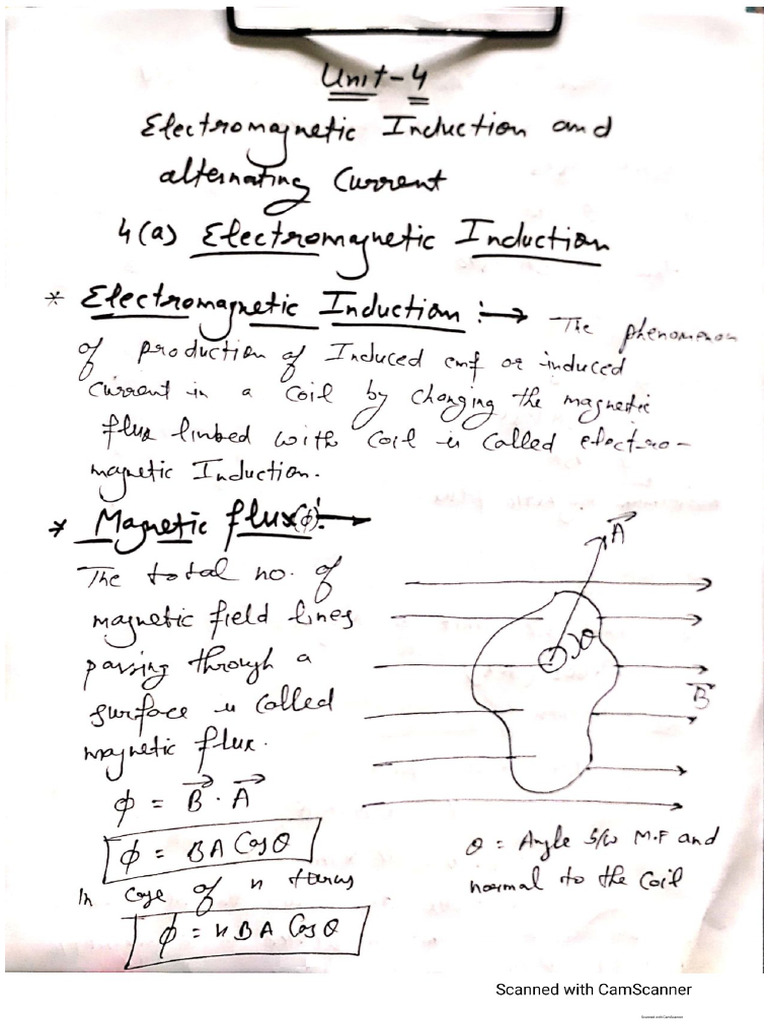 Unit-4
Electromagnetic Induction and
alternating Current
4(a) Electromagnetic Induction
* Electromagnetic Induction :→ The phenomenon
of production of Induced emf or induced
current in a coil by changing the magnetic
flux linked with coil is called electro-
magnetic Induction.
* Magnetic flux(ϕ):→
The total no. of
magnetic field lines
passing through a
surface is called
magnetic flux.
ϕ = B⃗ · A⃗
ϕ = BA Cosθ
In case of n turns
ϕ = nBA Cosθ
A⃗
θ
B⃗
θ = Angle b/w M.F and
normal to the coil
Scanned with CamScanner
Scanned with CamScanner